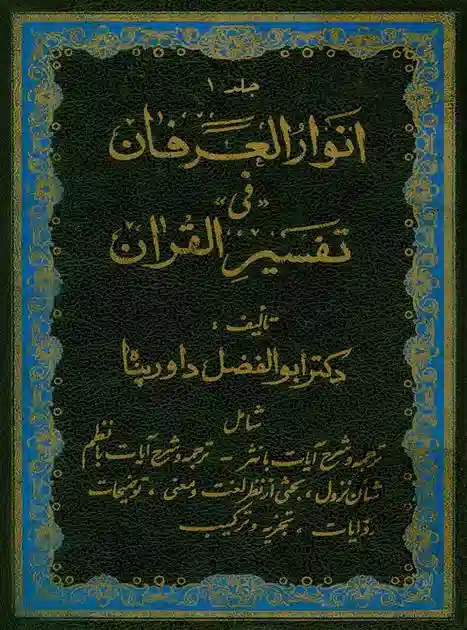 جلد ۱
انوار العرفان
«فی»
تفسیر القرآن
تألیف :
دکتر ابوالفضل داورپناه
شامل
ترجمه و شرح آیات با نثر – ترجمه و شرح آیات با نظم
شأن نزول ، بحثی از نظر لغت و معنی ، توضیحات
روایات ، تجزیه و ترکیب